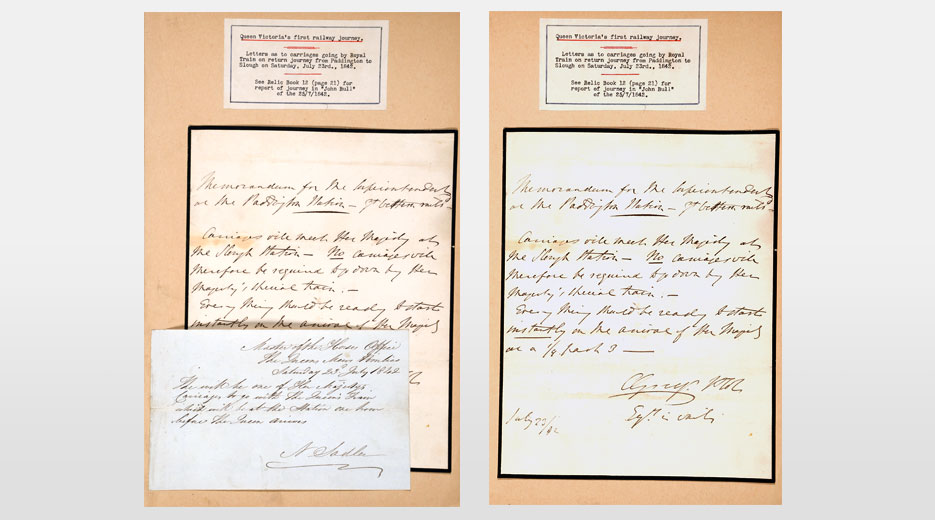 Queen Victoria's first railway journey.
Letters as to carriages going by Royal
Train on return journey from Paddington to
Slough on Saturday, July 23rd., 1842.
See Relic Book 12 (page 21) for
report of journey in "John Bull"
of the 23/7/1842.
Memorandum for the Superintendent
at the Paddington Station –
Carriages will meet Her Majesty at
the Slough Station – No Carriages will
therefore be required to go down by Her
Majesty's special train. –
Every thing should be ready to start
instantly on the arrival of Her Majesty
Master of the Horses Office
The Queens Mews Pimlico
Saturday 23rd July 1842
will be one of Her Majestys
Carriages to go with the Queens Train
which will be at the Station one hour
before the Queen arrives
N Sadler
Queen Victoria's first railway journey.
Letters as to carriages going by Royal
Train on return journey from Paddington to
Slough on Saturday, July 23rd., 1842.
See Relic Book 12 (page 21) for
report of journey in "John Bull"
of the 23/7/1842.
Memorandum for the Superintendent
at the Paddington Station –
Carriages will meet Her Majesty at
the Slough Station – No Carriages will
therefore be required to go down by Her
Majesty's special train. –
Every thing should be ready to start
instantly on the arrival of Her Majesty
at a 1/4 past 3 –
July 23/42